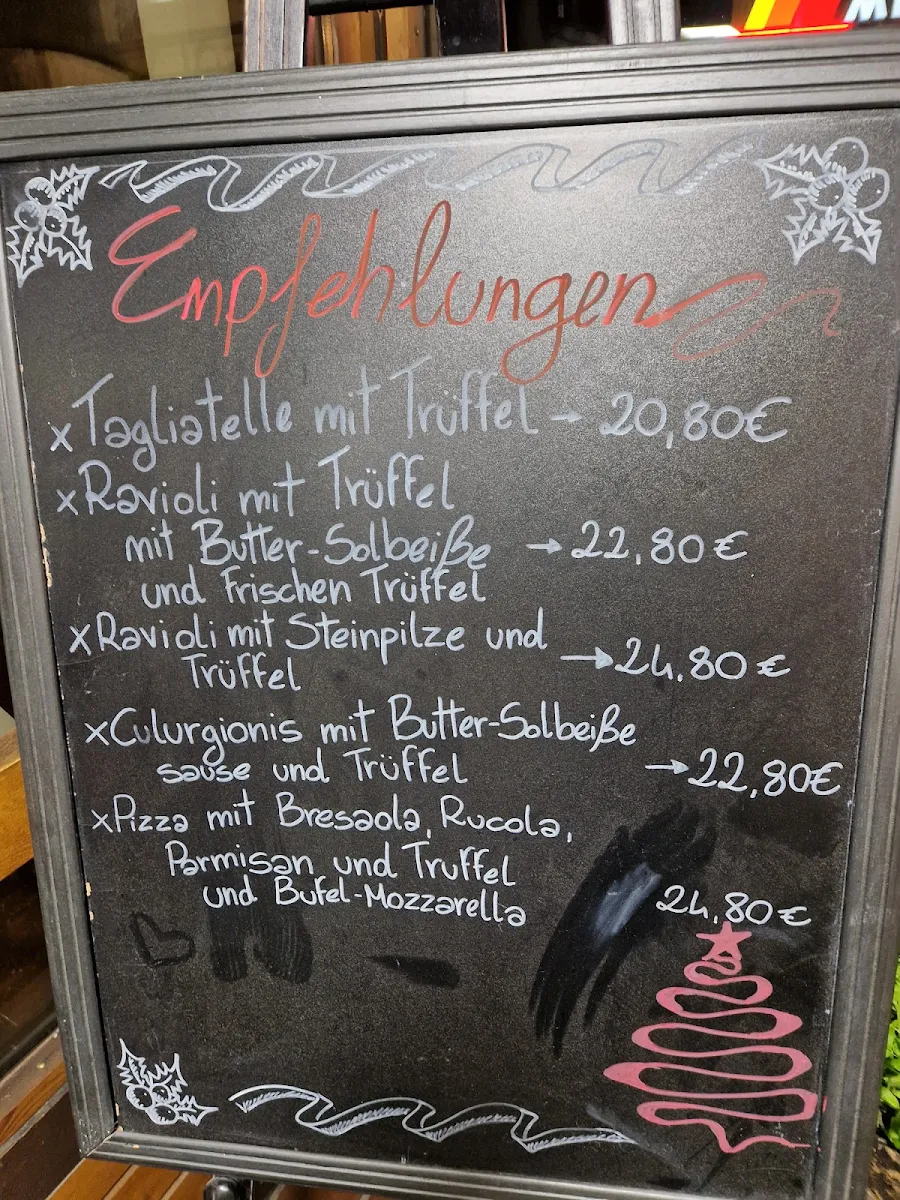 Empfehlungen
x Tagliatelle mit Trüffel → 20,80€
x Ravioli mit Trüffel
mit Butter-Solbeiße → 22,80€
und Frischen Trüffel
x Ravioli mit Steinpilze und
Trüffel → 24,80€
x Culurgionis mit Butter-Solbeiße
sause und Trüffel → 22,80€
x Pizza mit Bresaola, Rucola,
Parmisan und Truffel
und Bufel-Mozzarella 24,80€